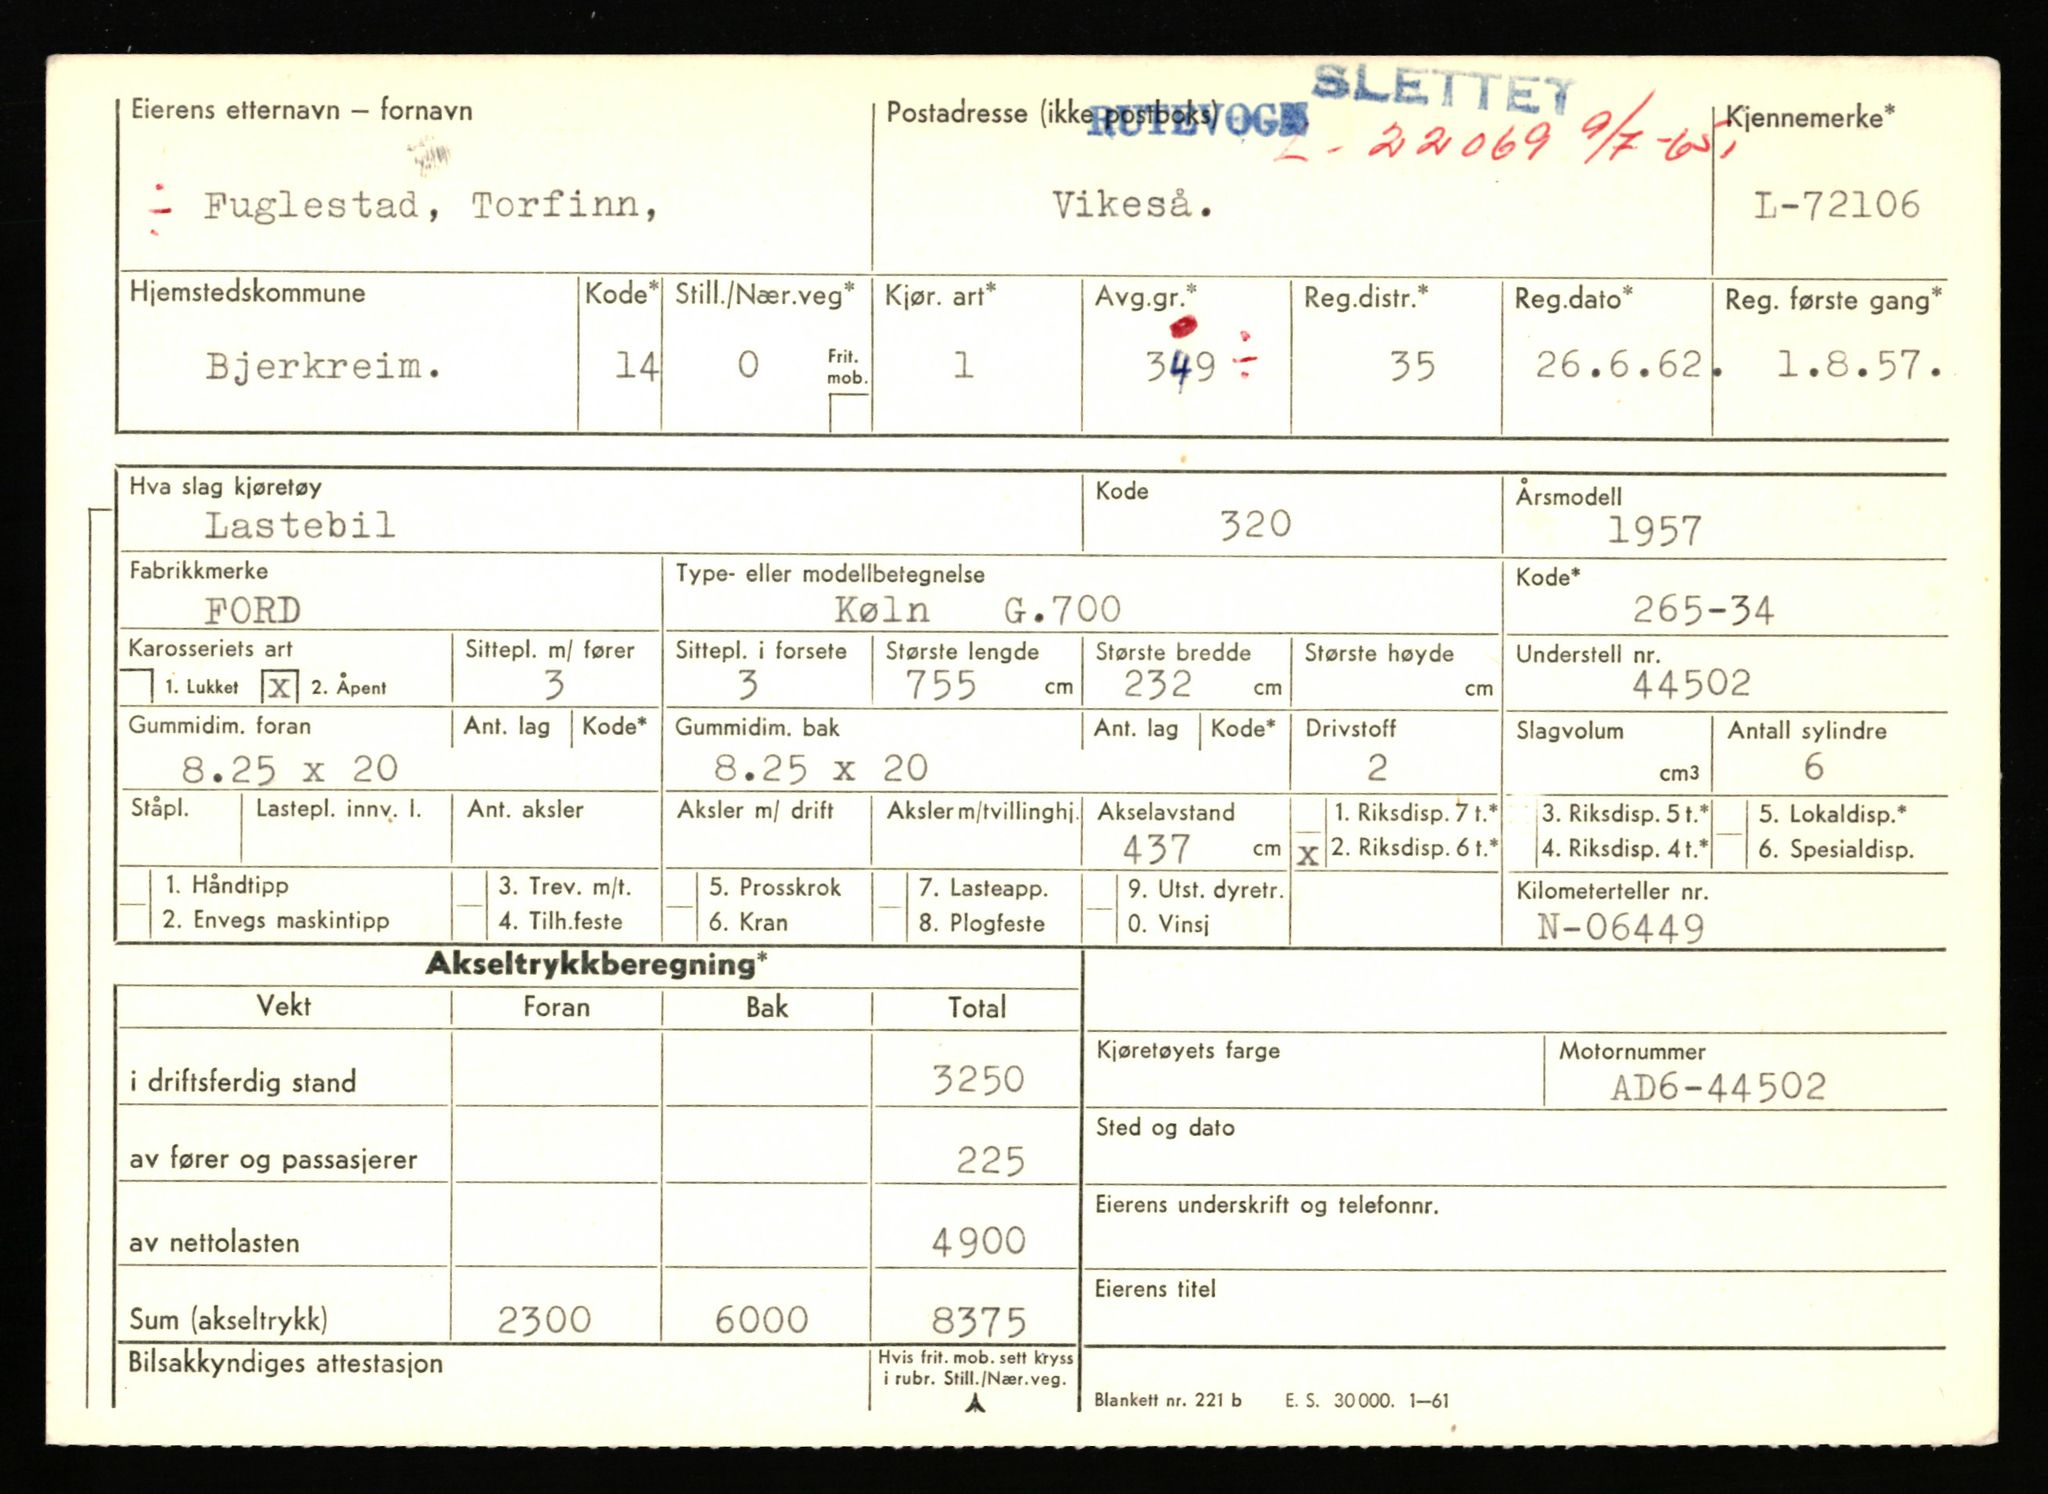 SLETTET
Eierens etternavn – fornavn Postadresse (ikke postboks) RUTEVOGN Kjennemerke*
L - 22069 9/7-65
Fuglestad, Torfinn, Vikeså. L-72106
Hjemstedskommune Kode* Still./Nær.veg* Kjør. art* Avg.gr.* Reg.distr.* Reg.dato* Reg. første gang*
Bjerkreim. 14 0 Frit. mob. 1 349 35 26.6.62. 1.8.57.
Hva slag kjøretøy Kode Årsmodell
Lastebil 320 1957
Fabrikkmerke Type- eller modellbetegnelse Kode*
FORD Køln G.700 265-34
Karosseriets art Sittepl. m/ fører Sittepl. i forsete Største lengde Største bredde Største høyde Understell nr.
1. Lukket x 2. Åpent 3 3 755 cm 232 cm cm 44502
Gummidim. foran Ant. lag Kode* Gummidim. bak Ant. lag Kode* Drivstoff Slagvolum Antall sylindre
8.25 x 20 8.25 x 20 2 cm3 6
Ståpl. Lastepl. innv. l. Ant. aksler Aksler m/ drift Aksler m/tvillinghj. Akselavstand 1. Riksdisp. 7 t.* 3. Riksdisp. 5 t.* 5. Lokaldisp.*
437 cm x 2. Riksdisp. 6 t.* 4. Riksdisp. 4 t.* 6. Spesialdisp.
1. Håndtipp 3. Trev. m/t. 5. Prosskrok 7. Lasteapp. 9. Utst. dyretr. Kilometerteller nr.
2. Envegs maskintipp 4. Tilh.feste 6. Kran 8. Plogfeste 0. Vinsj N-06449
Akseltrykkberegning*
Vekt Foran Bak Total
Kjøretøyets farge Motornummer
i driftsferdig stand 3250 AD6-44502
Sted og dato
av fører og passasjerer 225
Eierens underskrift og telefonnr.
av nettolasten 4900
Eierens titel
Sum (akseltrykk) 2300 6000 8375
Bilsakkyndiges attestasjon Hvis frit. mob. sett kryss
i rubr. Still./Nær.veg.
Blankett nr. 221 b E. S. 30 000. 1—61